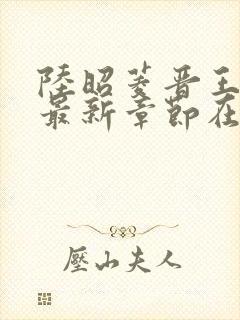 陸昭菱晋王
最新章節在
壓山夫人